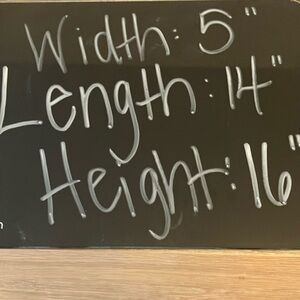 Width: 5"
Length: 14"
Height: 16"